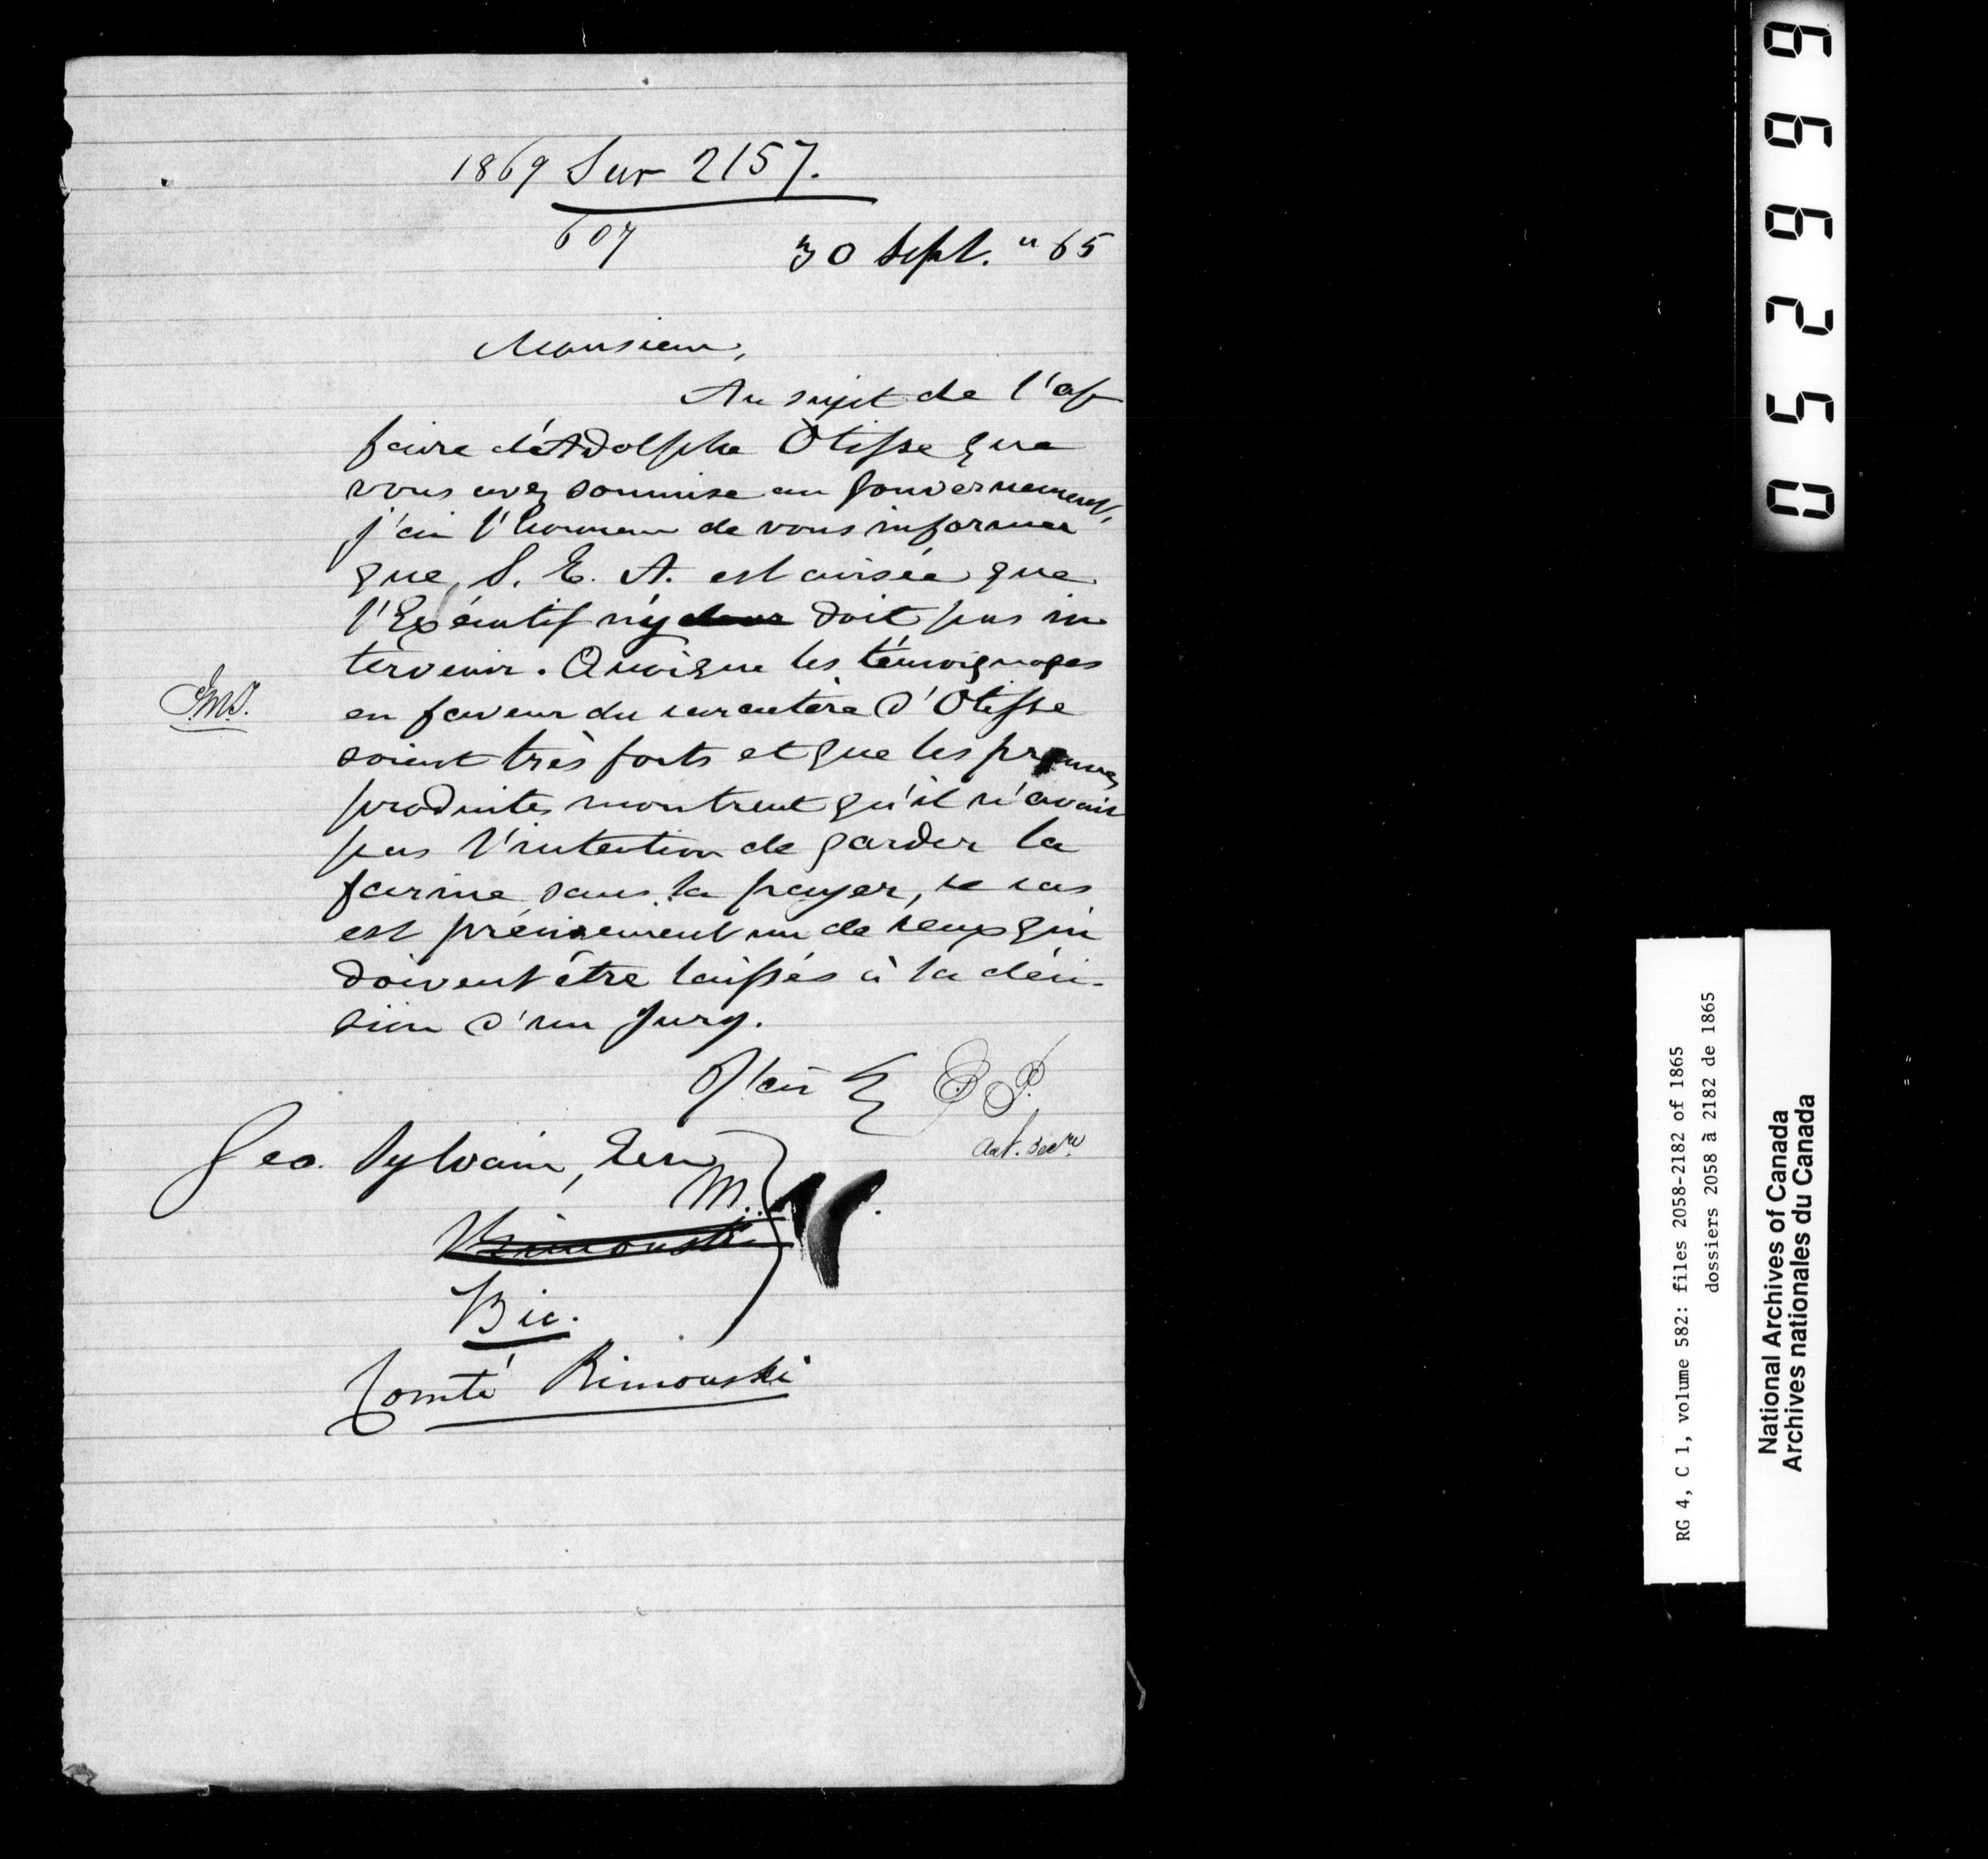 1869 Sur 2157.
607
30 Sept. " 65
Monsieur,
Au sujet de l'af
faire d'Adolphe Otisse que
vous avez soumise au Gouvernement,
j'ai l'honneur de vous informer
que S. E. A. est avisée que
l'Exécutif n'y doit pas in
tervenir. Quoique les témoignages
en faveur du caractère d'Otisse
soient très forts et que les preuves
produites montrent qu'il n'avait
pas l'intention de garder la
farine sans la payer, ce cas
est précisement un de ceux qui
doivent être laissés à la déci-
sion d'un Jury.
J'ai &
Asst. Secre
Geo. Sylvain, Ecr
M.
Rimouski
Bic.
Comté Rimouski
056999
RG 4, C 1, volume 582: files 2058-2182 of 1865
dossiers 2058 à 2182 de 1865
National Archives of Canada
Archives nationales du Canada